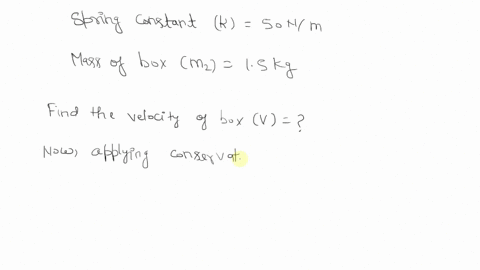 Spring Constant (k) = 50 N/m
Mass of box (m2) = 1.5 kg
Find the velocity of box (V) = ?
Now, applying conservat